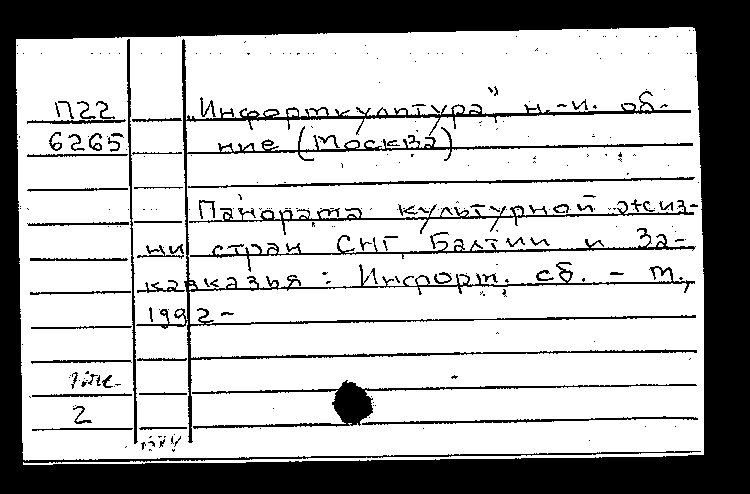 П22
6265
„Информкультура", н.-и. об-
ние (Москва)
Панорама культурной жиз-
ни стран СНГ, Балтии и За-
кавказья : Информ. сб. - М.,
1992 -
2